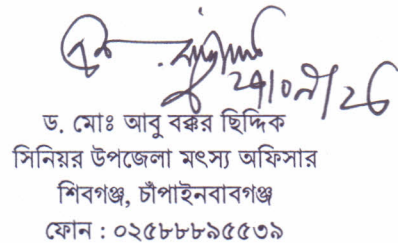 ড. মোঃ আবু বক্কর ছিদ্দিক
সিনিয়র উপজেলা মৎস্য অফিসার
শিবগঞ্জ, চাঁপাইনবাবগঞ্জ
ফোন : ০২৫৮৮৮৯৫৫৩৯